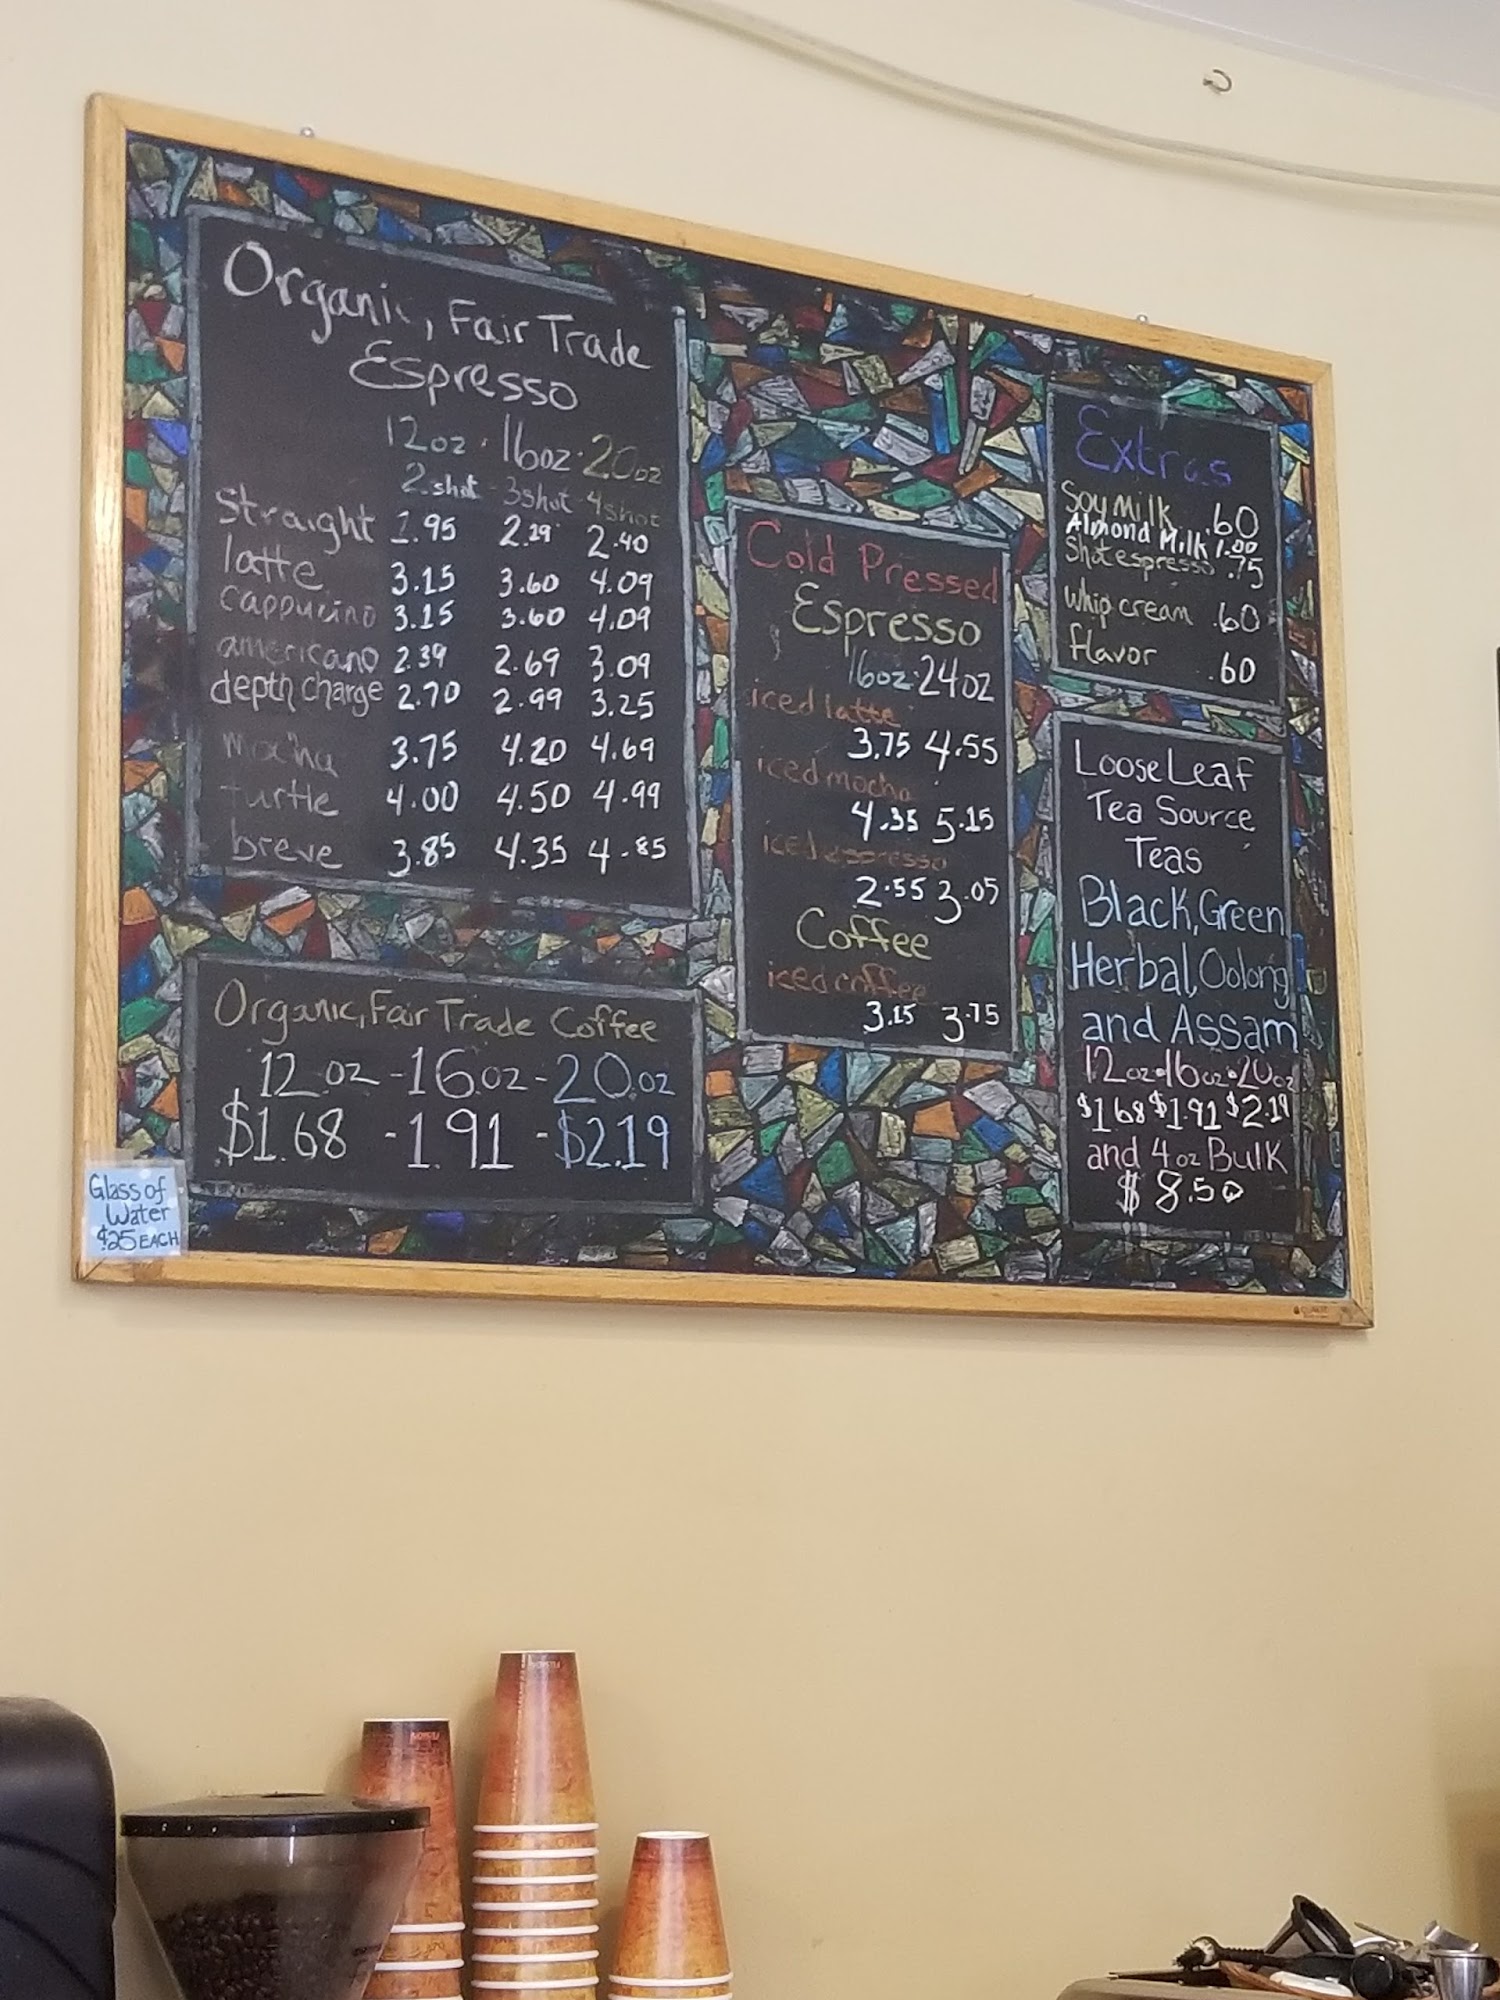 Organic, Fair Trade
Espresso
12oz · 16oz · 20oz
2 shot - 3shot - 4shot
Straight 1.95 2.29 2.40
latte 3.15 3.60 4.09
cappucino 3.15 3.60 4.09
americano 2.39 2.69 3.09
depth charge 2.70 2.99 3.25
mocha 3.75 4.20 4.69
turtle 4.00 4.50 4.99
breve 3.85 4.35 4.85
Organic, Fair Trade Coffee
12oz - 16oz - 20oz
$1.68 - 1.91 - $2.19
Glass of
Water
$.25 EACH
Cold Pressed
Espresso
16oz · 24oz
iced latte
3.75 4.55
iced mocha
4.35 5.15
iced espresso
2.55 3.05
Coffee
iced coffee
3.15 3.75
Extras
Soy Milk .60
Almond Milk 1.00
Shot espresso .75
Whip cream .60
flavor .60
Loose Leaf
Tea Source
Teas
Black, Green,
Herbal, Oolong
and Assam
12oz · 16oz · 20oz
$1.68 $1.91 $2.19
and 4oz Bulk
$ 8.50